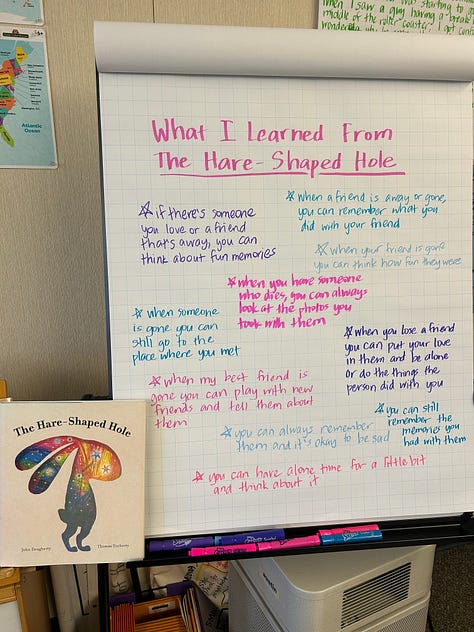 when I saw a guy having a break
middle of the roller-coaster. I get
Atlantic
Ocean
What I Learned From
The Hare-Shaped Hole
☆ if there's someone
you love or a friend
that's away, you can
think about fun memories
☆ when a friend is away or gone,
you can remember what you
did with your friend
☆ when your friend is gone
you can think how fun they were
☆ when you have someone
who dies, you can always
look at the photos you
took with them
☆ when someone
is gone you can
still go to the
place where you met
☆ when you lose a friend
you can put your love
in them and be alone
or do the things the
person did with you
☆ when my best friend is
gone you can play with new
friends and tell them about
them
☆ you can still
remember the
memories you
had with them
☆ you can always remember
them and it's okay to be sad
☆ you can have alone time for a little bit
and think about it
The Hare-Shaped Hole
John Dougherty
Thomas Docherty